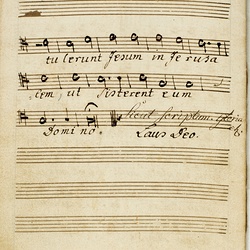 tulerunt Jesum in Jerusa
lem, ut sisterent eum
Sicut scriptum.
Domino. Laus Deo.